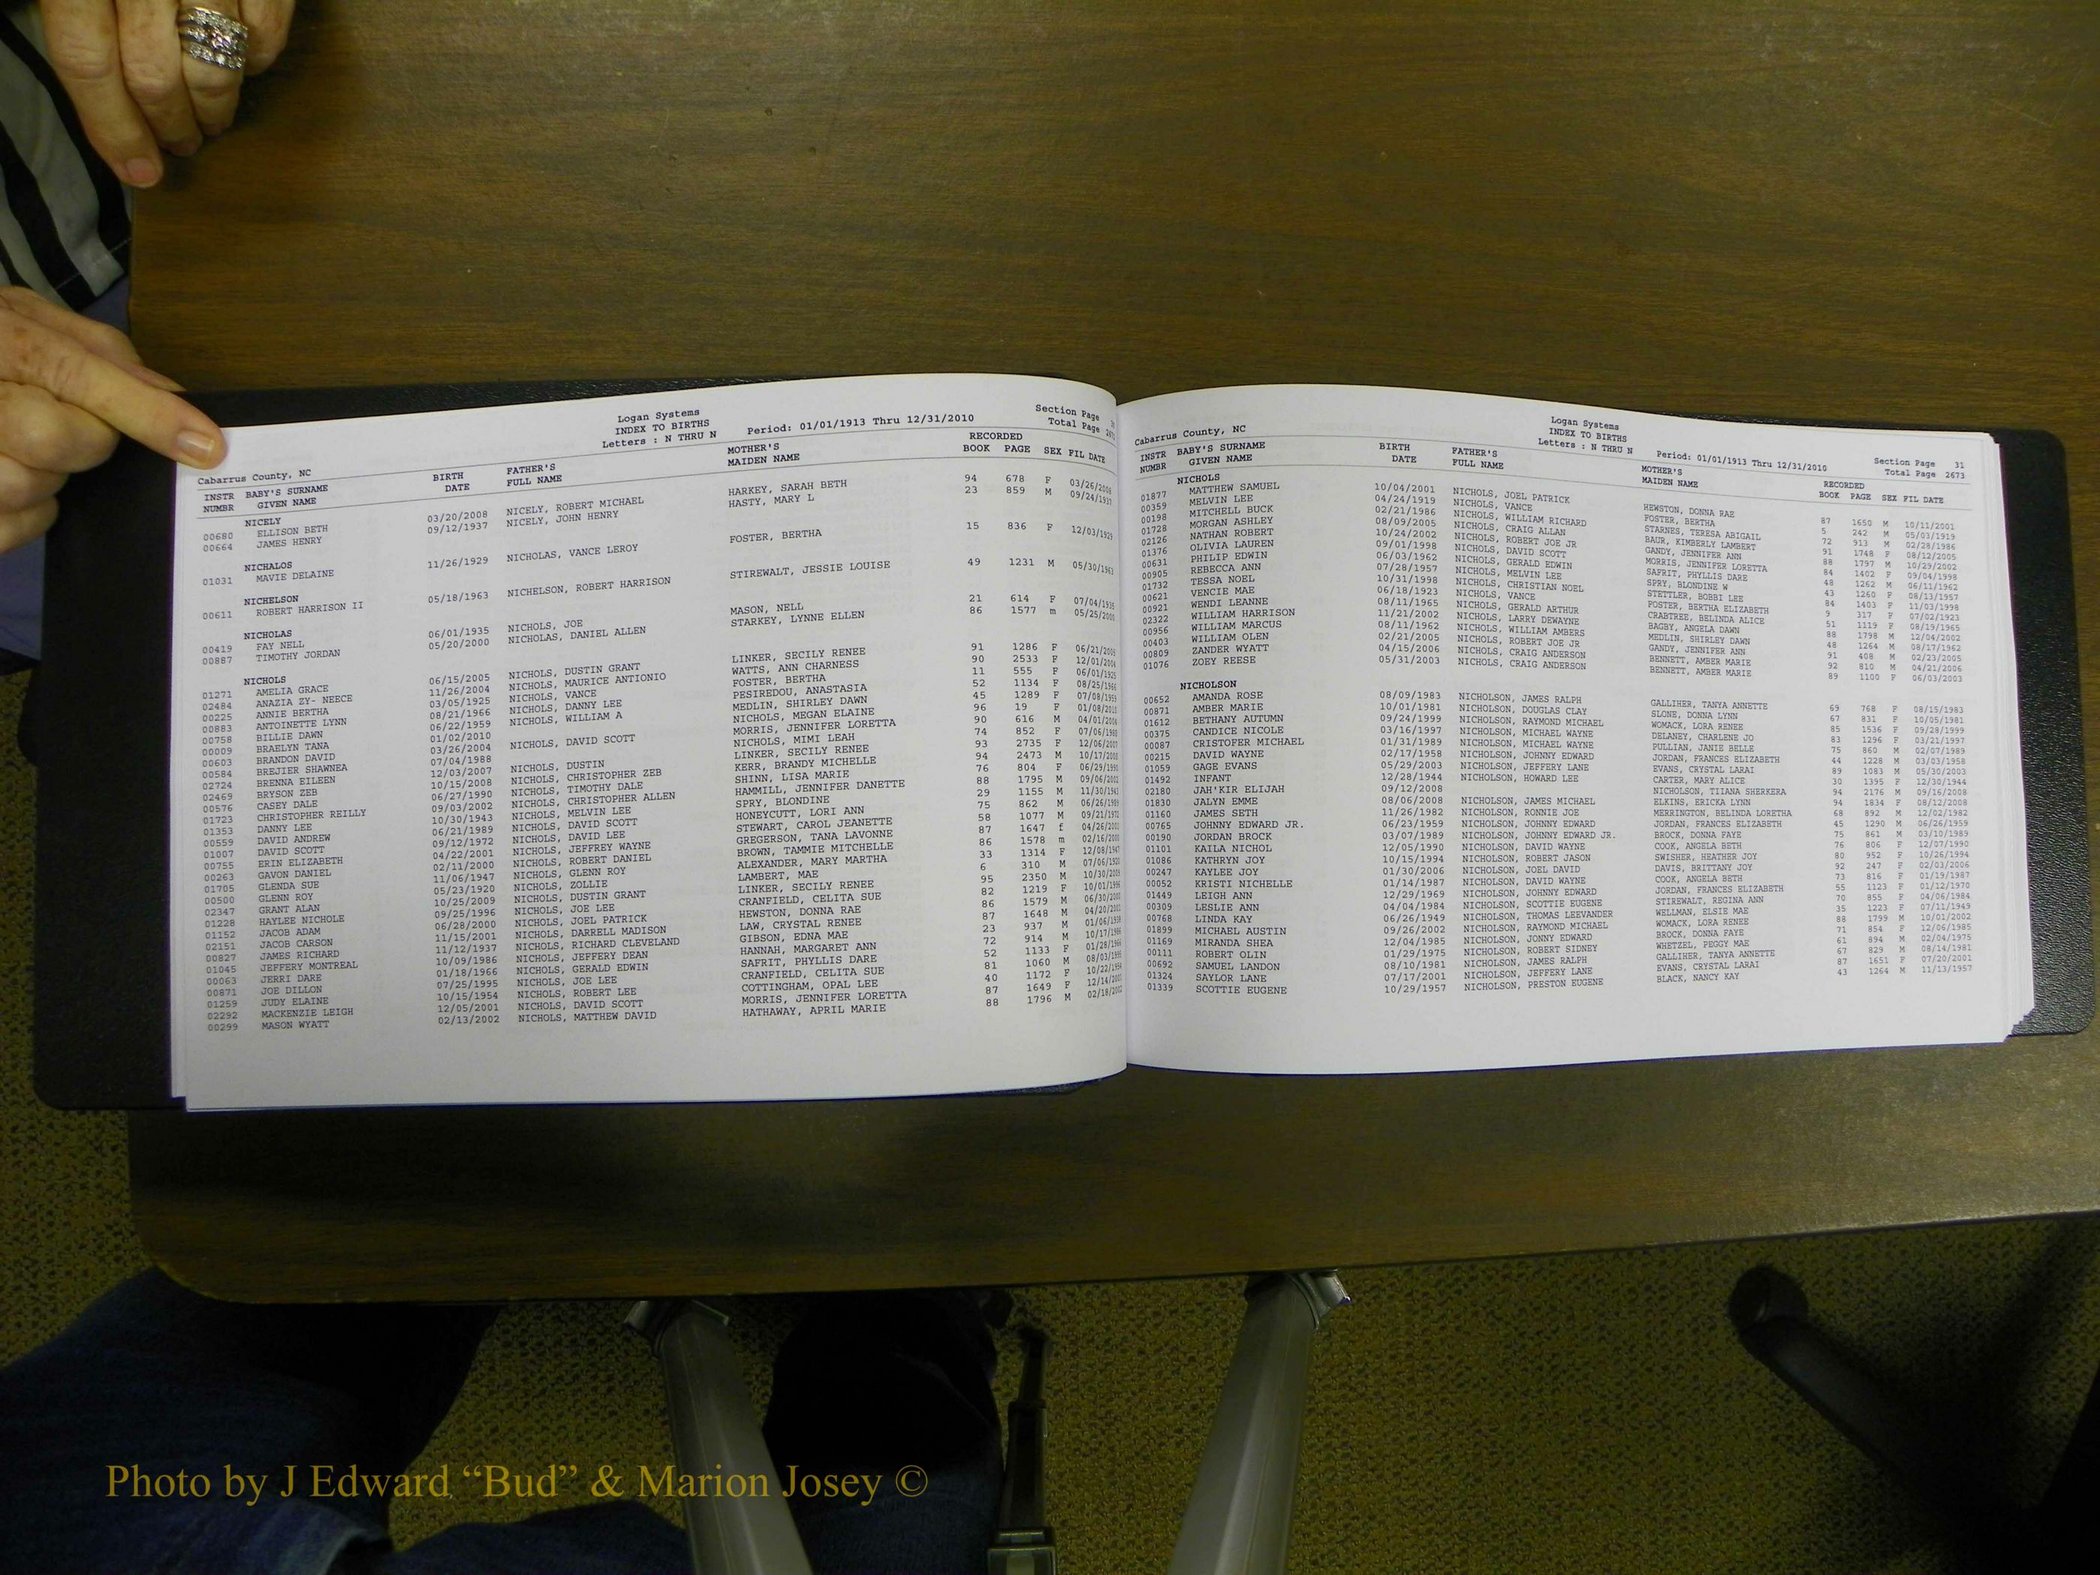 Logan Systems
INDEX TO BIRTHS
Letters : N THRU N
Period: 01/01/1913 Thru 12/31/2010
Section Page 30
Total Page 2672
Cabarrus County, NC
INSTR NUMBR BABY'S SURNAME GIVEN NAME BIRTH DATE FATHER'S FULL NAME MOTHER'S MAIDEN NAME RECORDED BOOK PAGE SEX FIL DATE
NICELY
00680 ELLISON BETH 03/20/2008 NICELY, ROBERT MICHAEL HARKEY, SARAH BETH 94 678 F 03/26/2008
00664 JAMES HENRY 09/12/1937 NICELY, JOHN HENRY HASTY, MARY L 23 859 M 09/24/1937
NICHALOS
01031 MAVIE DELAINE 11/26/1929 NICHOLAS, VANCE LEROY FOSTER, BERTHA 15 836 F 12/03/1929
NICHELSON
00611 ROBERT HARRISON II 05/18/1963 NICHELSON, ROBERT HARRISON STIREWALT, JESSIE LOUISE 49 1231 M 05/30/1963
NICHOLAS
00419 FAY NELL 06/01/1935 NICHOLS, JOE MASON, NELL 21 614 F 07/04/1935
00887 TIMOTHY JORDAN 05/20/2000 NICHOLAS, DANIEL ALLEN STARKEY, LYNNE ELLEN 86 1577 m 05/25/2000
NICHOLS
01271 AMELIA GRACE 06/15/2005 NICHOLS, DUSTIN GRANT LINKER, SECILY RENEE 91 1286 F 06/21/2005
02484 ANAZIA ZY- NEECE 11/26/2004 NICHOLS, MAURICE ANTIONIO WATTS, ANN CHARNESS 90 2533 F 12/01/2004
00225 ANNIE BERTHA 03/05/1925 NICHOLS, VANCE FOSTER, BERTHA 11 555 F 06/01/1925
00883 ANTOINETTE LYNN 08/21/1966 NICHOLS, DANNY LEE PESIREDOU, ANASTASIA 52 1134 F 08/25/1966
00758 BILLIE DAWN 06/22/1959 NICHOLS, WILLIAM A MEDLIN, SHIRLEY DAWN 45 1289 F 07/08/1959
00009 BRAELYN TANA 01/02/2010 NICHOLS, MEGAN ELAINE 96 19 F 01/08/2010
00603 BRANDON DAVID 03/26/2004 NICHOLS, DAVID SCOTT MORRIS, JENNIFER LORETTA 90 616 M 04/01/2004
00584 BREJIER SHAWNEA 07/04/1988 NICHOLS, MIMI LEAH 74 852 F 07/06/1988
02724 BRENNA EILEEN 12/03/2007 NICHOLS, DUSTIN LINKER, SECILY RENEE 93 2735 F 12/06/2007
02469 BRYSON ZEB 10/15/2008 NICHOLS, CHRISTOPHER ZEB KERR, BRANDY MICHELLE 94 2473 M 10/17/2008
00576 CASEY DALE 06/27/1990 NICHOLS, TIMOTHY DALE SHINN, LISA MARIE 76 804 F 06/29/1990
01723 CHRISTOPHER REILLY 09/03/2002 NICHOLS, CHRISTOPHER ALLEN HAMMILL, JENNIFER DANETTE 88 1795 M 09/06/2002
01353 DANNY LEE 10/30/1943 NICHOLS, MELVIN LEE SPRY, BLONDINE 29 1155 M 11/30/1943
00559 DAVID ANDREW 06/21/1989 NICHOLS, DAVID SCOTT HONEYCUTT, LORI ANN 75 862 M 06/26/1989
01007 DAVID SCOTT 09/12/1972 NICHOLS, DAVID LEE STEWART, CAROL JEANETTE 58 1077 M 09/21/1972
00755 ERIN ELIZABETH 04/22/2001 NICHOLS, JEFFREY WAYNE GREGERSON, TANA LAVONNE 87 1647 f 04/26/2001
00263 GAVON DANIEL 02/11/2000 NICHOLS, ROBERT DANIEL BROWN, TAMMIE MITCHELLE 86 1578 m 02/16/2000
01705 GLENDA SUE 11/06/1947 NICHOLS, GLENN ROY ALEXANDER, MARY MARTHA 33 1314 F 12/08/1947
00500 GLENN ROY 05/23/1920 NICHOLS, ZOLLIE LAMBERT, MAE 6 310 M 07/06/1920
02347 GRANT ALAN 10/25/2009 NICHOLS, DUSTIN GRANT LINKER, SECILY RENEE 95 2350 M 10/30/2009
01228 HAYLEE NICHOLE 09/25/1996 NICHOLS, JOE LEE CRANFIELD, CELITA SUE 82 1219 F 10/01/1996
01152 JACOB ADAM 06/28/2000 NICHOLS, JOEL PATRICK HEWSTON, DONNA RAE 86 1579 M 06/30/2000
02151 JACOB CARSON 11/15/2001 NICHOLS, DARRELL MADISON LAW, CRYSTAL RENEE 87 1648 M
00827 JAMES RICHARD 11/12/1937 NICHOLS, RICHARD CLEVELAND GIBSON, EDNA MAE 23 937 M 01/06/1938
01045 JEFFERY MONTREAL 10/09/1986 NICHOLS, JEFFERY DEAN HANNAH, MARGARET ANN 72 914 M 10/17/1986
00063 JERRI DARE 01/18/1966 NICHOLS, GERALD EDWIN SAFRIT, PHYLLIS DARE 52 1133 F 01/28/1966
00871 JOE DILLON 07/25/1995 NICHOLS, JOE LEE CRANFIELD, CELITA SUE 81 1060 M 08/03/1995
01259 JUDY ELAINE 10/15/1954 NICHOLS, ROBERT LEE COTTINGHAM, OPAL LEE 40 1172 F 10/22/1954
02292 MACKENZIE LEIGH 12/05/2001 NICHOLS, DAVID SCOTT MORRIS, JENNIFER LORETTA 87 1649 F 12/14/2001
00299 MASON WYATT 02/13/2002 NICHOLS, MATTHEW DAVID HATHAWAY, APRIL MARIE 88 1796 M 02/18/2002
Logan Systems
INDEX TO BIRTHS
Letters : N THRU N
Period: 01/01/1913 Thru 12/31/2010
Section Page 31
Total Page 2673
Cabarrus County, NC
INSTR NUMBR BABY'S SURNAME GIVEN NAME BIRTH DATE FATHER'S FULL NAME MOTHER'S MAIDEN NAME RECORDED BOOK PAGE SEX FIL DATE
NICHOLS
01877 MATTHEW SAMUEL 10/04/2001 NICHOLS, JOEL PATRICK HEWSTON, DONNA RAE 87 1650 M 10/11/2001
00359 MELVIN LEE 04/24/1919 NICHOLS, VANCE FOSTER, BERTHA 5 242 M 05/03/1919
00198 MITCHELL BUCK 02/21/1986 NICHOLS, WILLIAM RICHARD STARNES, TERESA ABIGAIL 72 913 M 02/28/1986
01728 MORGAN ASHLEY 08/09/2005 NICHOLS, CRAIG ALLAN BAUR, KIMBERLY LAMBERT 91 1748 F 08/12/2005
02126 NATHAN ROBERT 10/24/2002 NICHOLS, ROBERT JOE JR GANDY, JENNIFER ANN 88 1797 M 10/29/2002
01376 OLIVIA LAUREN 09/01/1998 NICHOLS, DAVID SCOTT MORRIS, JENNIFER LORETTA 84 1402 F 09/04/1998
00631 PHILIP EDWIN 06/03/1962 NICHOLS, GERALD EDWIN SAFRIT, PHYLLIS DARE 48 1262 M 06/11/1962
00905 REBECCA ANN 07/28/1957 NICHOLS, MELVIN LEE SPRY, BLONDINE W 43 1260 F 08/13/1957
01732 TESSA NOEL 10/31/1998 NICHOLS, CHRISTIAN NOEL STETTLER, BOBBI LEE 84 1403 F 11/03/1998
00621 VENCIE MAE 06/18/1923 NICHOLS, VANCE FOSTER, BERTHA ELIZABETH 9 317 F 07/02/1923
00921 WENDI LEANNE 08/11/1965 NICHOLS, GERALD ARTHUR CRABTREE, BELINDA ALICE 51 1119 F 08/19/1965
02322 WILLIAM HARRISON 11/21/2002 NICHOLS, LARRY DEWAYNE BAGBY, ANGELA DAWN 88 1798 M 12/04/2002
00956 WILLIAM MARCUS 08/11/1962 NICHOLS, WILLIAM AMBERS MEDLIN, SHIRLEY DAWN 48 1264 M 08/17/1962
00403 WILLIAM OLEN 02/21/2005 NICHOLS, ROBERT JOE JR GANDY, JENNIFER ANN 91 408 M 02/23/2005
00809 ZANDER WYATT 04/15/2006 NICHOLS, CRAIG ANDERSON BENNETT, AMBER MARIE 92 810 M 04/21/2006
01076 ZOEY REESE 05/31/2003 NICHOLS, CRAIG ANDERSON BENNETT, AMBER MARIE 89 1100 F 06/03/2003
NICHOLSON
00652 AMANDA ROSE 08/09/1983 NICHOLSON, JAMES RALPH GALLIHER, TANYA ANNETTE 69 768 F 08/15/1983
00871 AMBER MARIE 10/01/1981 NICHOLSON, DOUGLAS CLAY SLONE, DONNA LYNN 67 831 F 10/05/1981
01612 BETHANY AUTUMN 09/24/1999 NICHOLSON, RAYMOND MICHAEL WOMACK, LORA RENEE 85 1536 F 09/28/1999
00375 CANDICE NICOLE 03/16/1997 NICHOLSON, MICHAEL WAYNE DELANEY, CHARLENE JO 83 1296 F 03/21/1997
00087 CRISTOFER MICHAEL 01/31/1989 NICHOLSON, MICHAEL WAYNE PULLIAN, JANIE BELLE 75 860 M 02/07/1989
00215 DAVID WAYNE 02/17/1958 NICHOLSON, JOHNNY EDWARD JORDAN, FRANCES ELIZABETH 44 1228 M 03/03/1958
01059 GAGE EVANS 05/29/2003 NICHOLSON, JEFFERY LANE EVANS, CRYSTAL LARAI 89 1083 M 05/30/2003
01492 INFANT 12/28/1944 NICHOLSON, HOWARD LEE CARTER, MARY ALICE 30 1395 F 12/30/1944
02180 JAH'KIR ELIJAH 09/12/2008 NICHOLSON, TIIANA SHERKERA 94 2176 M 09/16/2008
01830 JALYN EMME 08/06/2008 NICHOLSON, JAMES MICHAEL ELKINS, ERICKA LYNN 94 1834 F 08/12/2008
01160 JAMES SETH 11/26/1982 NICHOLSON, RONNIE JOE MERRINGTON, BELINDA LORETHA 68 892 M 12/02/1982
00765 JOHNNY EDWARD JR. 06/23/1959 NICHOLSON, JOHNNY EDWARD JORDAN, FRANCES ELIZABETH 45 1290 M 06/26/1959
00190 JORDAN BROCK 03/07/1989 NICHOLSON, JOHNNY EDWARD JR. BROCK, DONNA FAYE 75 861 M 03/10/1989
01101 KAILA NICHOL 12/05/1990 NICHOLSON, DAVID WAYNE COOK, ANGELA BETH 76 806 F 12/07/1990
01086 KATHRYN JOY 10/15/1994 NICHOLSON, ROBERT JASON SWISHER, HEATHER JOY 80 952 F 10/26/1994
00247 KAYLEE JOY 01/30/2006 NICHOLSON, JOEL DAVID DAVIS, BRITTANY JOY 92 247 F 02/03/2006
00052 KRISTI NICHELLE 01/14/1987 NICHOLSON, DAVID WAYNE COOK, ANGELA BETH 73 816 F 01/19/1987
01449 LEIGH ANN 12/29/1969 NICHOLSON, JOHNNY EDWARD JORDAN, FRANCES ELIZABETH 55 1123 F 01/12/1970
00309 LESLIE ANN 04/04/1984 NICHOLSON, SCOTTIE EUGENE STIREWALT, REGINA ANN 70 855 F 04/06/1984
00768 LINDA KAY 06/26/1949 NICHOLSON, THOMAS LEEVANDER WELLMAN, ELSIE MAE 35 1223 F 07/11/1949
01899 MICHAEL AUSTIN 09/26/2002 NICHOLSON, RAYMOND MICHAEL WOMACK, LORA RENEE 88 1799 M 10/01/2002
01169 MIRANDA SHEA 12/04/1985 NICHOLSON, JONNY EDWARD BROCK, DONNA FAYE 71 854 F 12/06/1985
00111 ROBERT OLIN 01/29/1975 NICHOLSON, ROBERT SIDNEY WHETZEL, PEGGY MAE 61 894 M 02/04/1975
00692 SAMUEL LANDON 08/10/1981 NICHOLSON, JAMES RALPH GALLIHER, TANYA ANNETTE 67 829 M 08/14/1981
01324 SAYLOR LANE 07/17/2001 NICHOLSON, JEFFERY LANE EVANS, CRYSTAL LARAI 87 1651 F 07/20/2001
01339 SCOTTIE EUGENE 10/29/1957 NICHOLSON, PRESTON EUGENE BLACK, NANCY KAY 43 1264 M 11/13/1957
Photo by J Edward "Bud" & Marion Josey ©